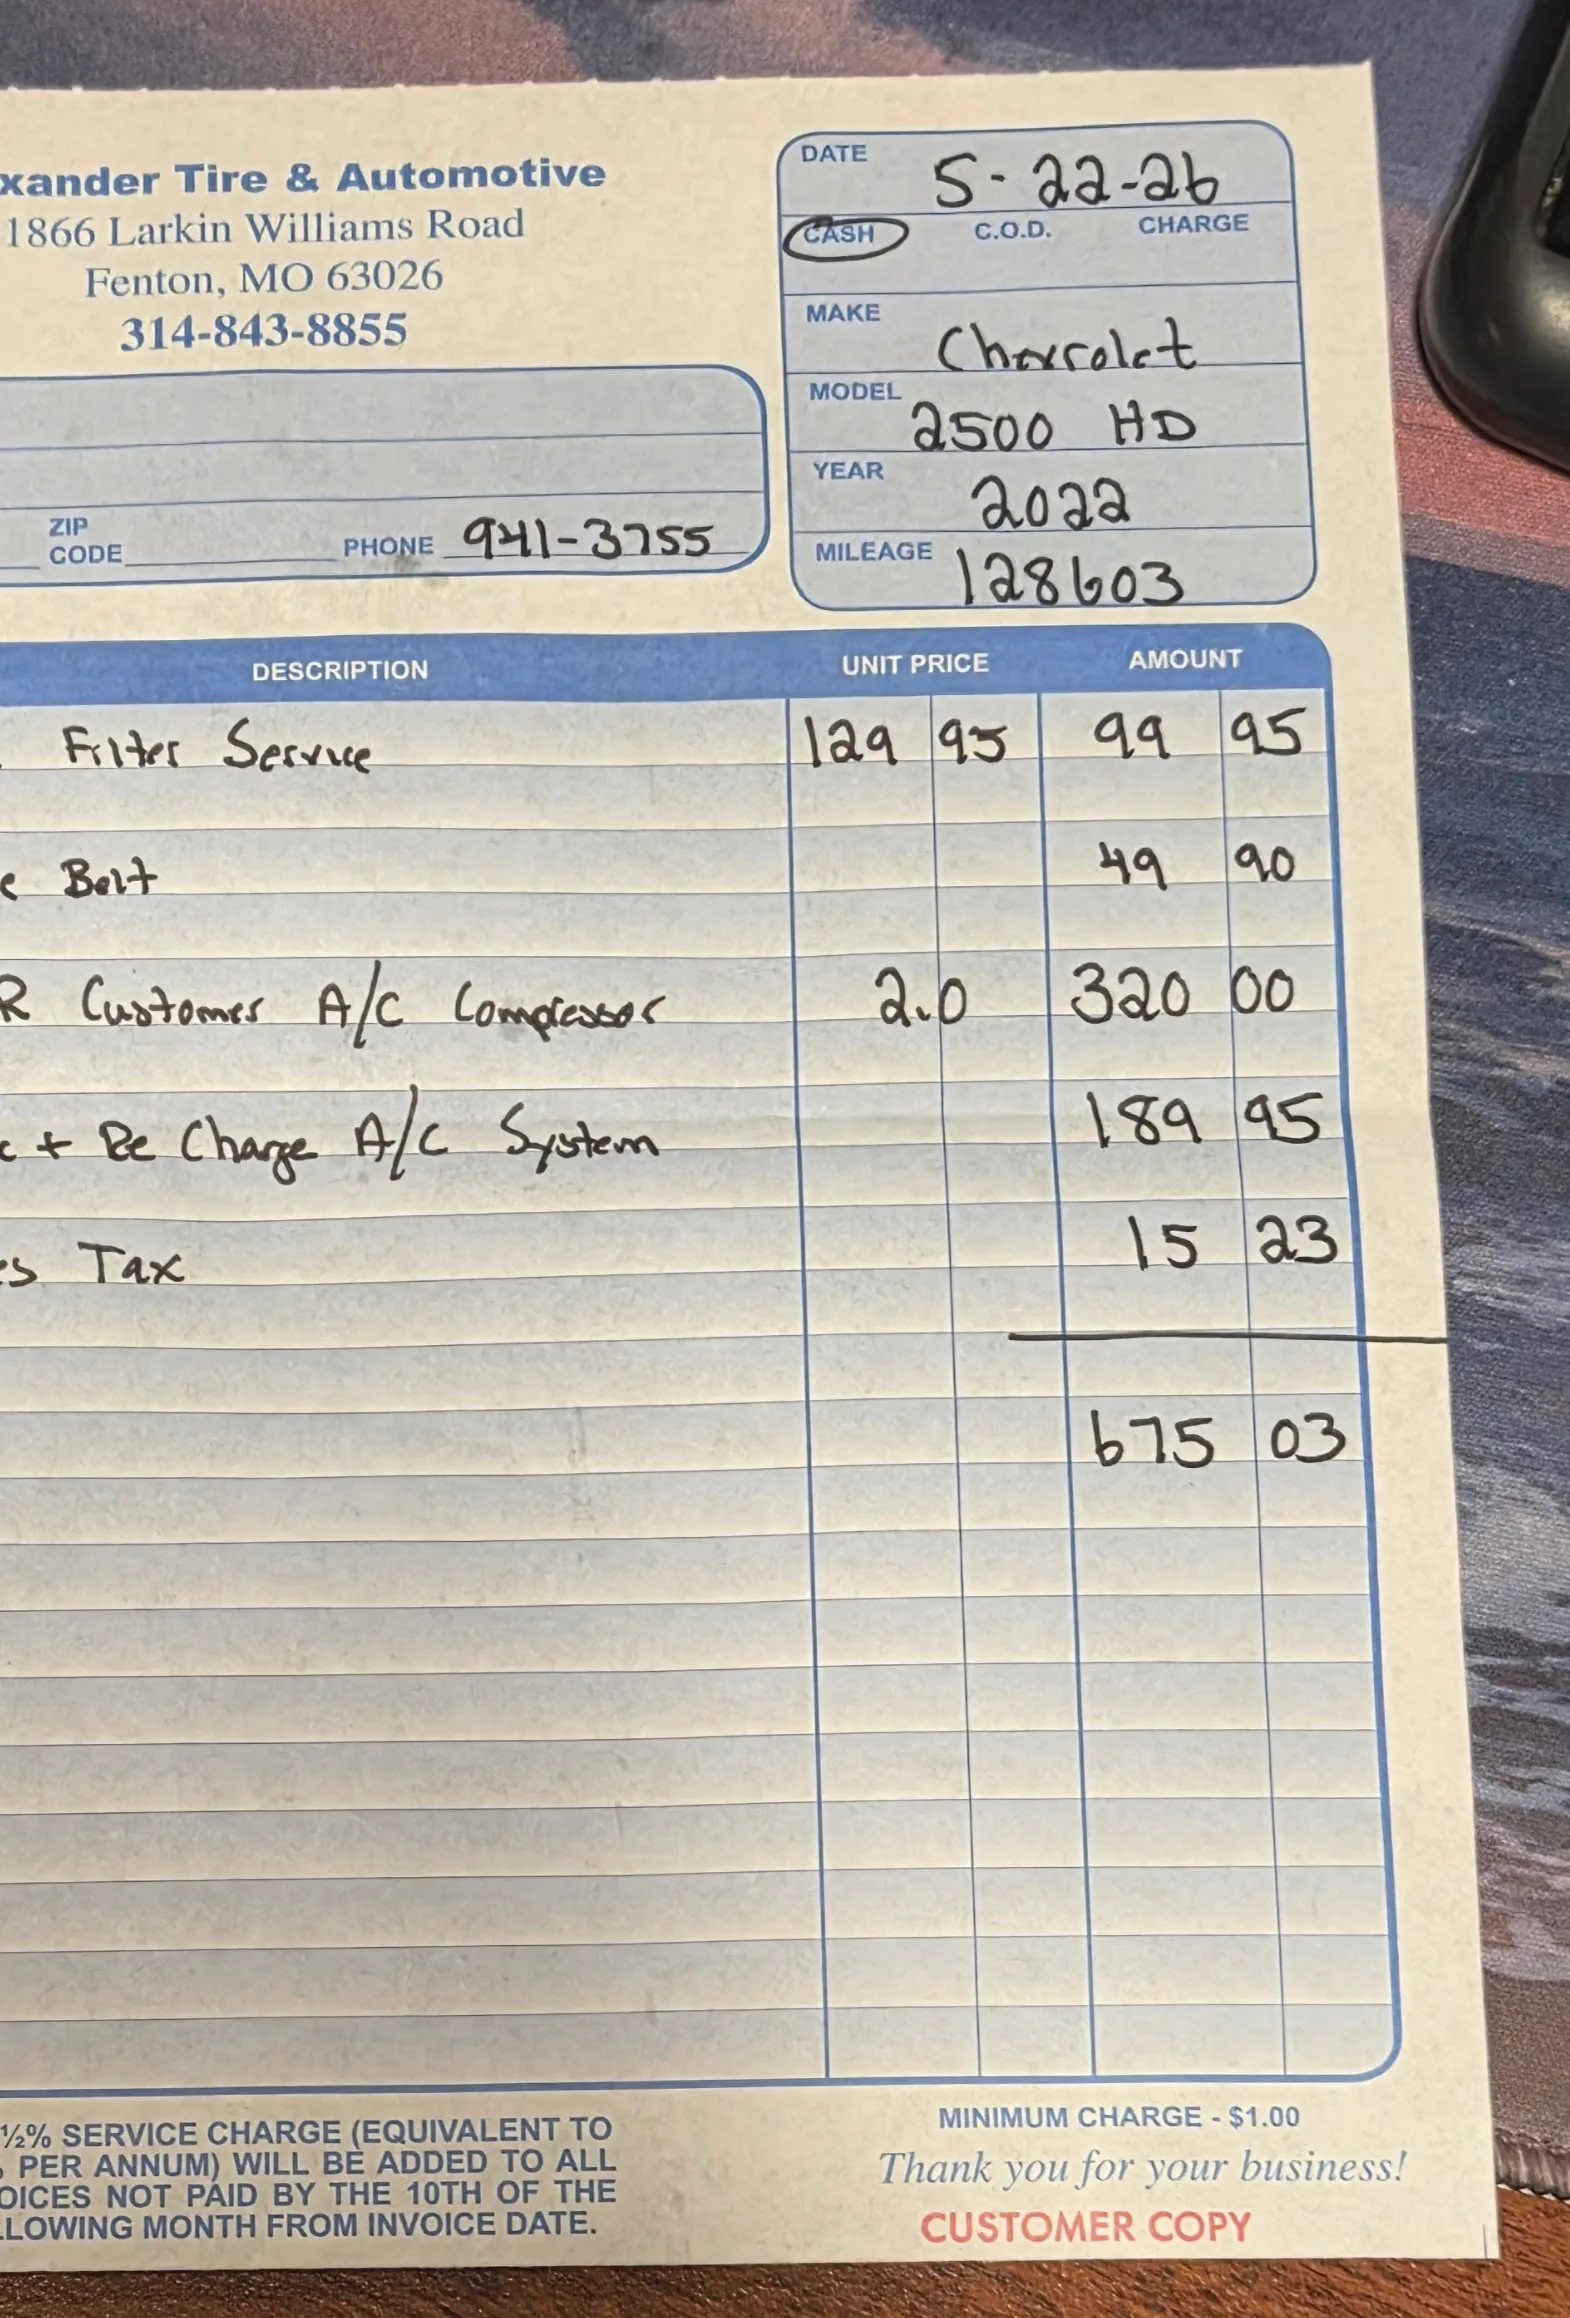 xander Tire & Automotive
1866 Larkin Williams Road
Fenton, MO 63026
314-843-8855
DATE 5-22-26
CASH C.O.D. CHARGE
MAKE Chevrolet
MODEL 2500 HD
YEAR 2022
MILEAGE 128603
ZIP CODE PHONE 941-3755
DESCRIPTION UNIT PRICE AMOUNT
Filter Service 129 95 99 95
e Belt 49 90
R Customer A/C Compressor 2.0 320 00
c + Re Charge A/C System 189 95
es Tax 15 23
675 03
½% SERVICE CHARGE (EQUIVALENT TO
PER ANNUM) WILL BE ADDED TO ALL
OICES NOT PAID BY THE 10TH OF THE
LLOWING MONTH FROM INVOICE DATE.
MINIMUM CHARGE - $1.00
Thank you for your business!
CUSTOMER COPY